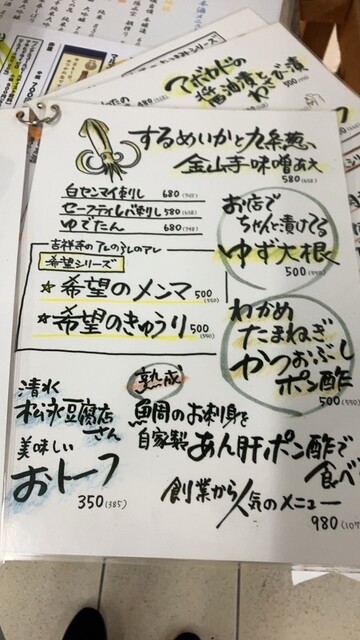 アボカドの
醤油漬と
わさび漬
500
するめいかと九条葱の
金山寺味噌あえ
580
白センマイ刺し 680
セーフティレバ刺し 580
ゆでたん 680
お店で
ちゃんと漬けてる
ゆず大根
500(550)
希望シリーズ
☆希望のメンマ 500(550)
☆希望のきゅうり 500(550)
わかめ
たまねぎ
かつおぶし
ポン酢
500(550)
清水
松永豆腐店さん
美味しい
おトーフ
350(385)
熟成
魚岡のお刺身を
自家製あん肝ポン酢で
食べ
創業から人気のメニュー
980